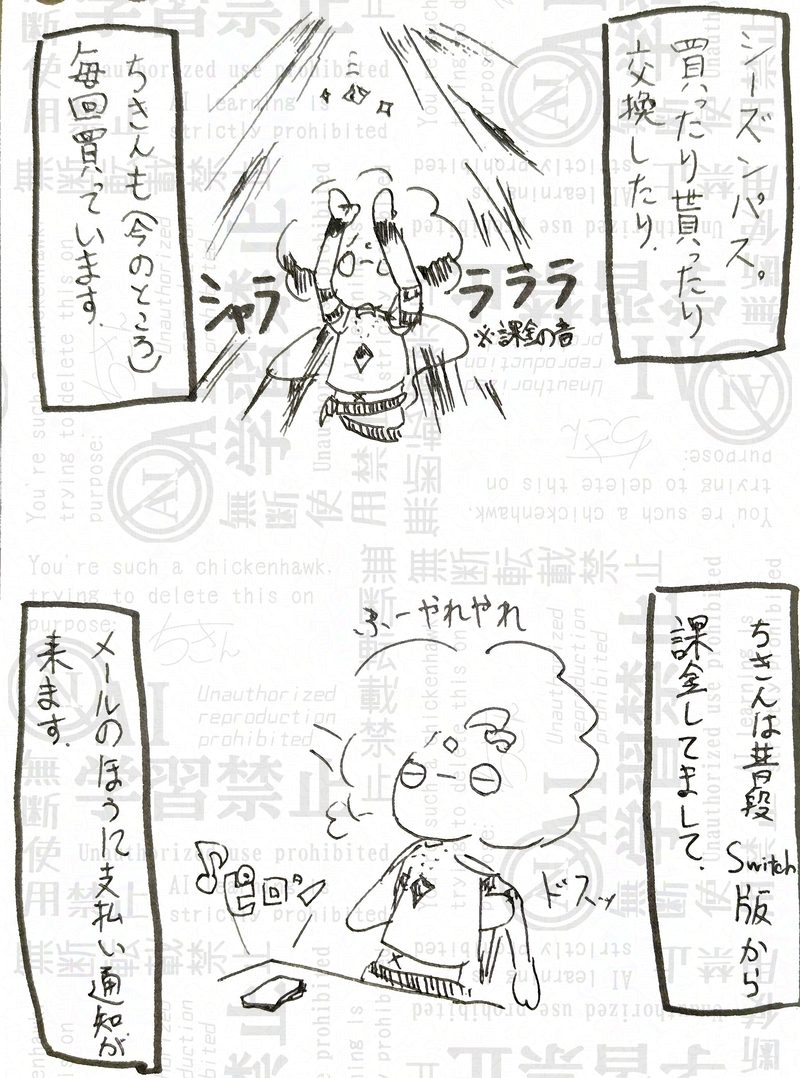 シーズンパス。
買ったり貰ったり
交換したり。
シャラ
ラララ
※課金の音
ちきんも(今のところ)
毎回買っています。
ちきんは普段Switch版から
課金してまして、
ふーやれやれ
ドスッ
♪ピロン
メールのほうに支払い通知が
来ます。
無断使用禁止
無断転載禁止
AI学習禁止
Unauthorized use prohibited
AI learning is
strictly prohibited
Unauthorized
reproduction
prohibited
You're such a chickenhawk.
trying to delete this on
purpose:
ちきん